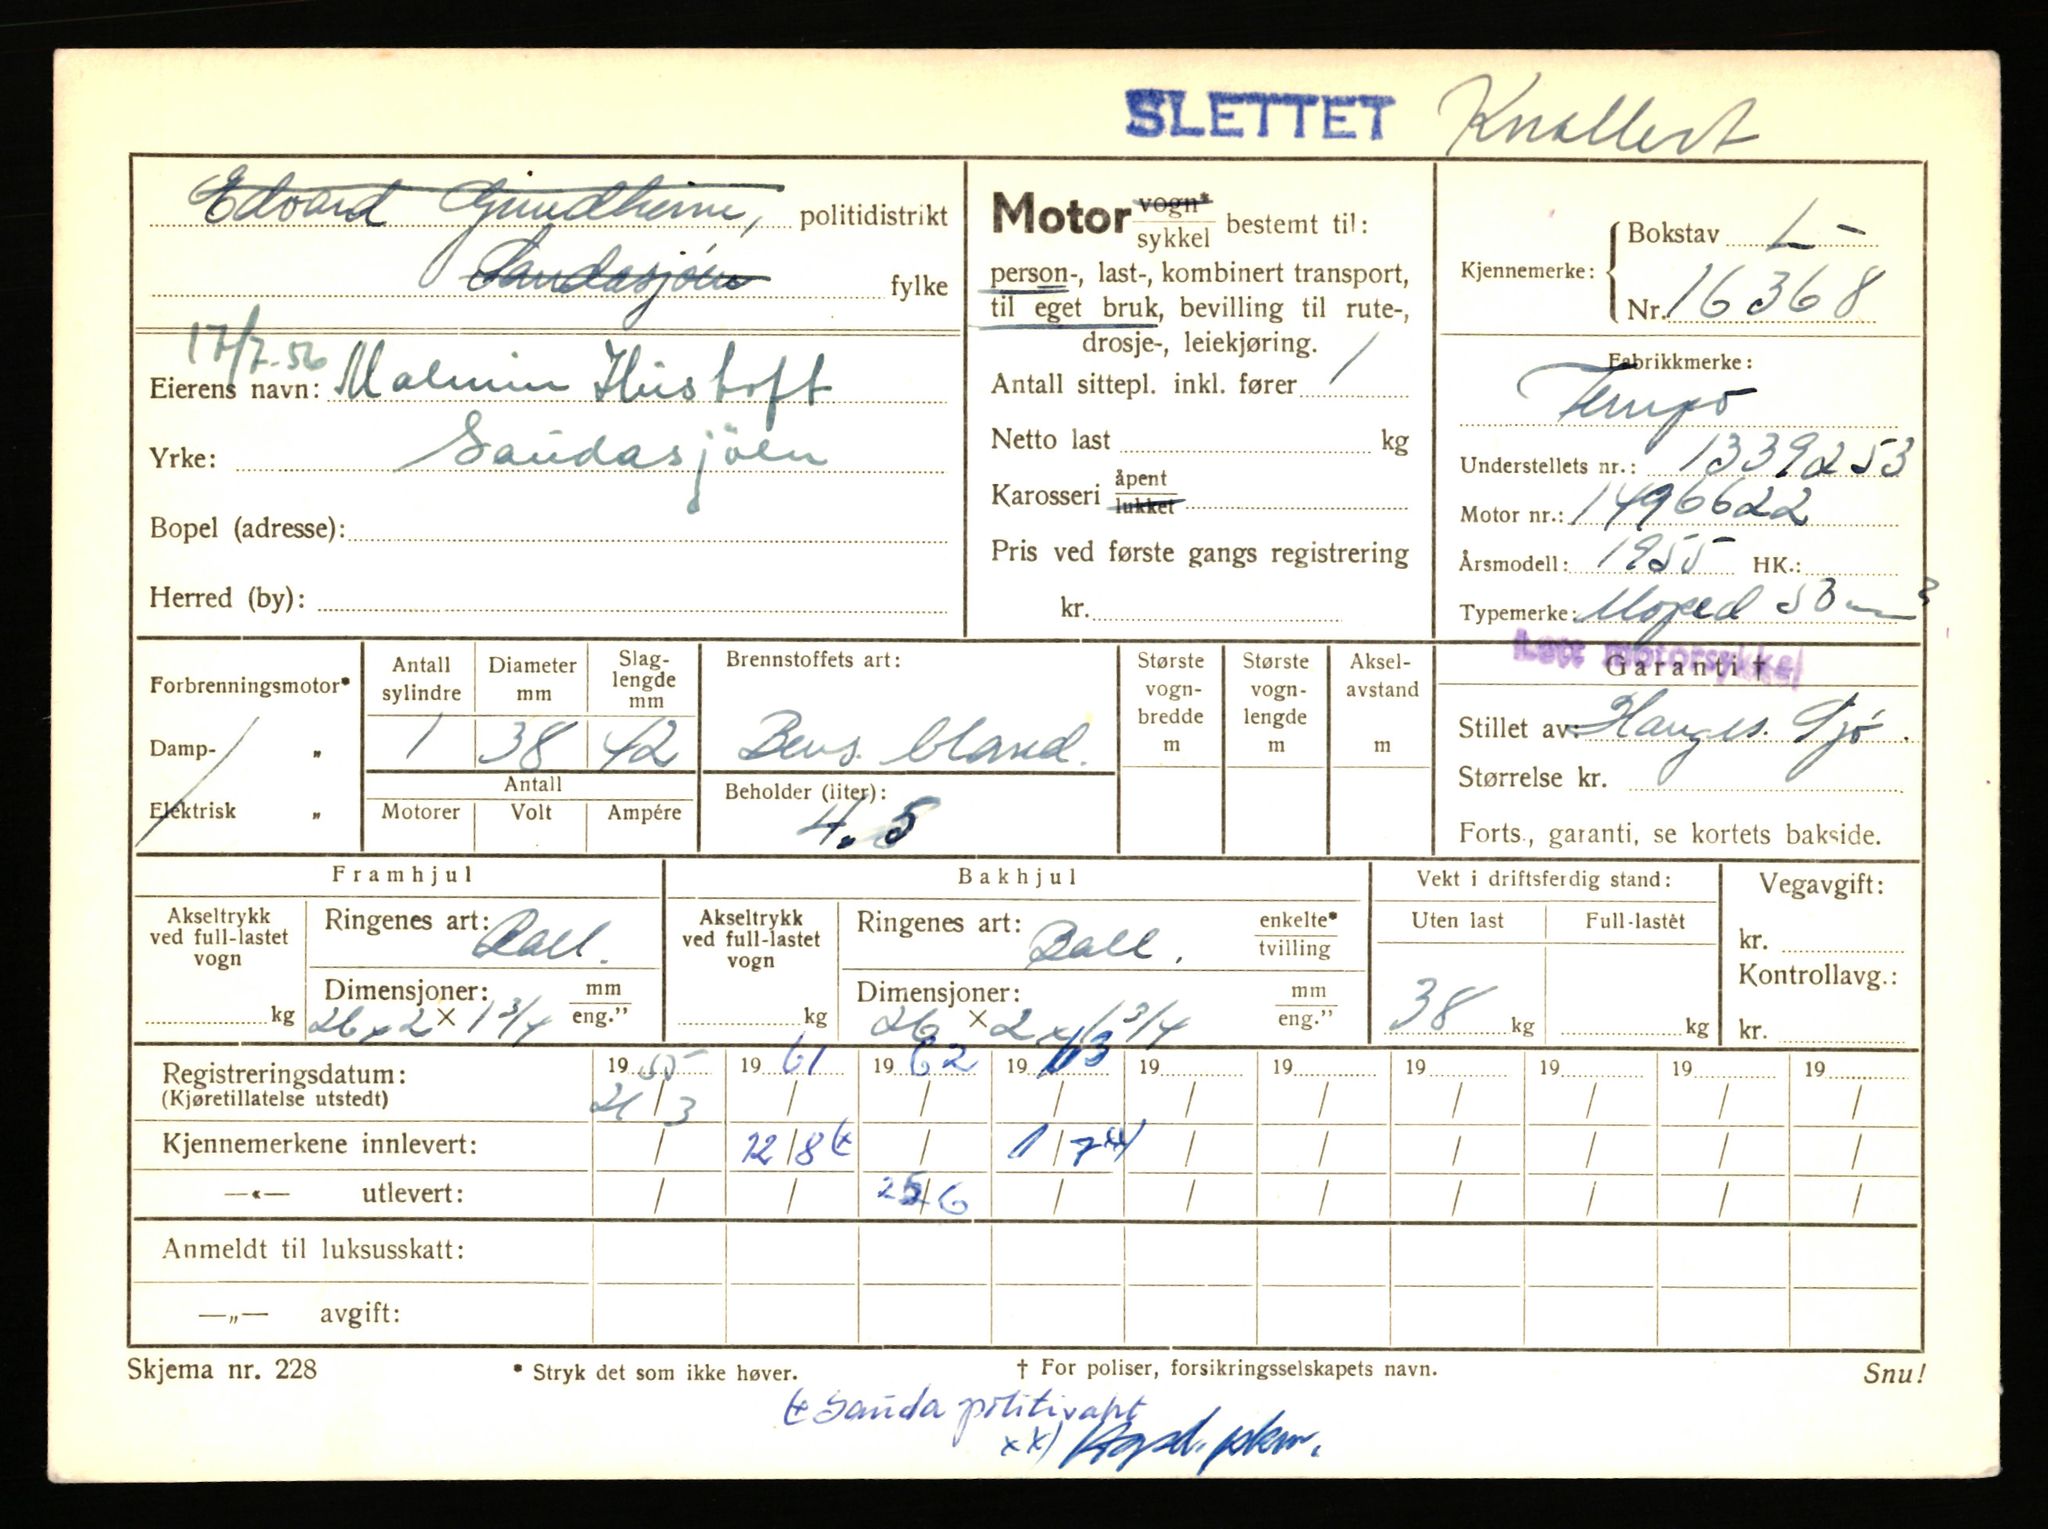 SLETTET Knallert
Edvard politidistrikt
Saudasjöen fylke
17/7-56
Eierens navn: Malmin Hustoft
Yrke: Saudasjöen
Bopel (adresse):
Herred (by):
Motor vogn* sykkel bestemt til:
person-, last-, kombinert transport,
til eget bruk, bevilling til rute-,
drosje-, leiekjøring.
Antall sittepl. inkl. fører 1
Netto last kg
Karosseri åpent lukket
Pris ved første gangs registrering
kr.
Kjennemerke: Bokstav L-
Nr. 16368
Fabrikkmerke:
Tempo
Understellets nr.: 1339253
Motor nr.: 1496622
Årsmodell: 1955 HK.:
Typemerke: Moped
Lett motorsykkel
Forbrenningsmotor*
Damp- „
Elektrisk „
Antall sylindre Diameter mm Slag-lengde mm
1 38 42
Antall
Motorer Volt Ampére
Brennstoffets art:
Bens. bland.
Beholder (liter):
4.5
Største vogn-bredde m
Største vogn-lengde m
Aksel-avstand m
Garanti †
Stillet av: Hauges. Sjø.
Størrelse kr.
Forts., garanti, se kortets bakside.
Framhjul
Akseltrykk ved full-lastet vogn
kg
Ringenes art: Ball.
Dimensjoner: mm eng."
26 x 2 × 1 3/4
Bakhjul
Akseltrykk ved full-lastet vogn
kg
Ringenes art: Ball. enkelte* tvilling
Dimensjoner: mm eng."
26 × 2 x 1 3/4
Vekt i driftsferdig stand:
Uten last Full-lastet
38 kg kg
Vegavgift:
kr.
Kontrollavg.:
kr.
Registreringsdatum: 1955 1961 1962 1963 19 19 19 19 19 19
(Kjøretillatelse utstedt) 21/3 / / / / / / / / /
Kjennemerkene innlevert: / 12/8 (x / 1/7 xx) / / / / / /
—«— utlevert: / / 25/6 / / / / / / /
Anmeldt til luksusskatt:
—„— avgift:
Skjema nr. 228 * Stryk det som ikke høver. † For poliser, forsikringsselskapets navn. Snu!
(x Sauda politivakt
xx)